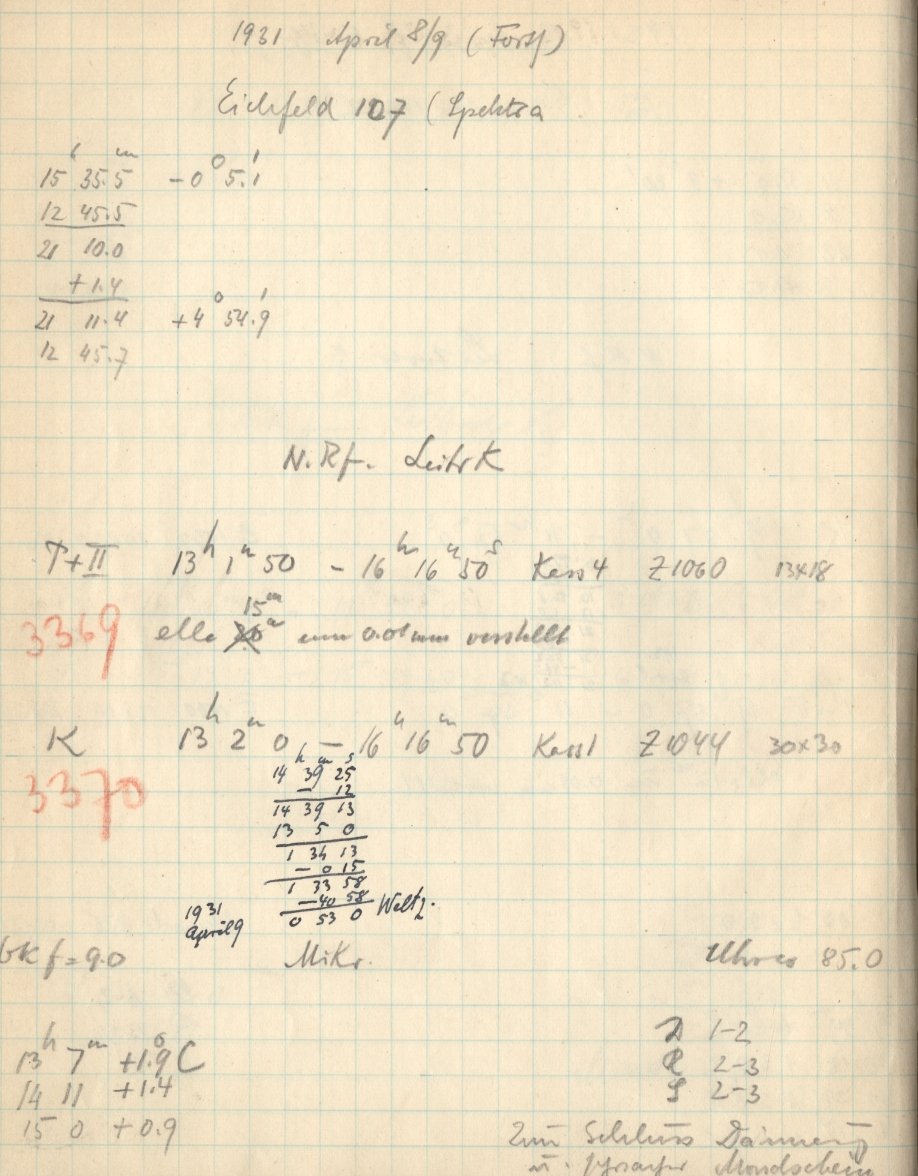 1931 April 8/9 (Forts.)
Eichfeld 107 (Spektra
15h 35.5m -0° 5.1'
12 45.5
21 10.0
+1.4
21 11.4 +4° 54.9'
12 45.7
N.Rf. Leitr K
T+II 13h 1m 50 - 16h 16m 50s Kass 4 Z1060 13x18
15m
3369 alle um 0.01mm verstellt
K 13h 2m 0 - 16h 16m 50 Kass 1 Z1044 30x30
3370
14h 39m 25s
- 12
14 39 13
13 5 0
1 34 13
- 0 15
1 33 58
-40 58
1931 April 9 0 53 0 Weltz.
f=9.0 Mikr. 85.0
13h 7m +1.9° C
14 11 +1.4
15 0 +0.9
1-2
2-3
2-3
Zum Schluss Dämmerg
u. Mondschein